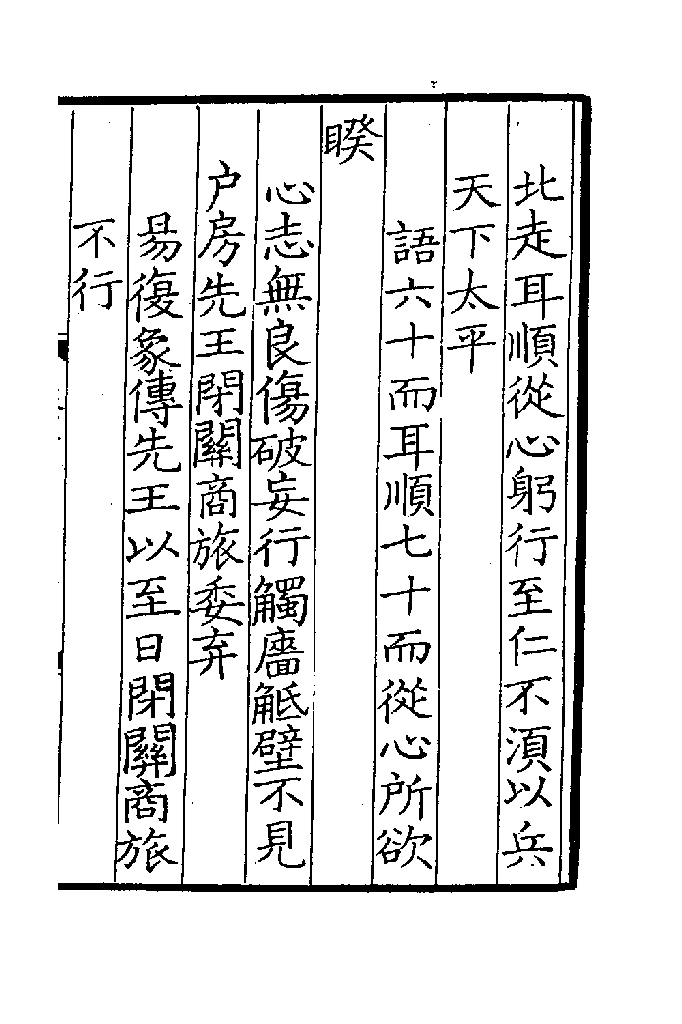 北走耳順從心躬行至仁不湏以兵
天下太平
語六十而耳順七十而從心所欲
睽
心志無良傷破妄行觸廧觝壁不見
户房先王閉關商旅委弃
易復象傳先王以至日閉關商旅
不行